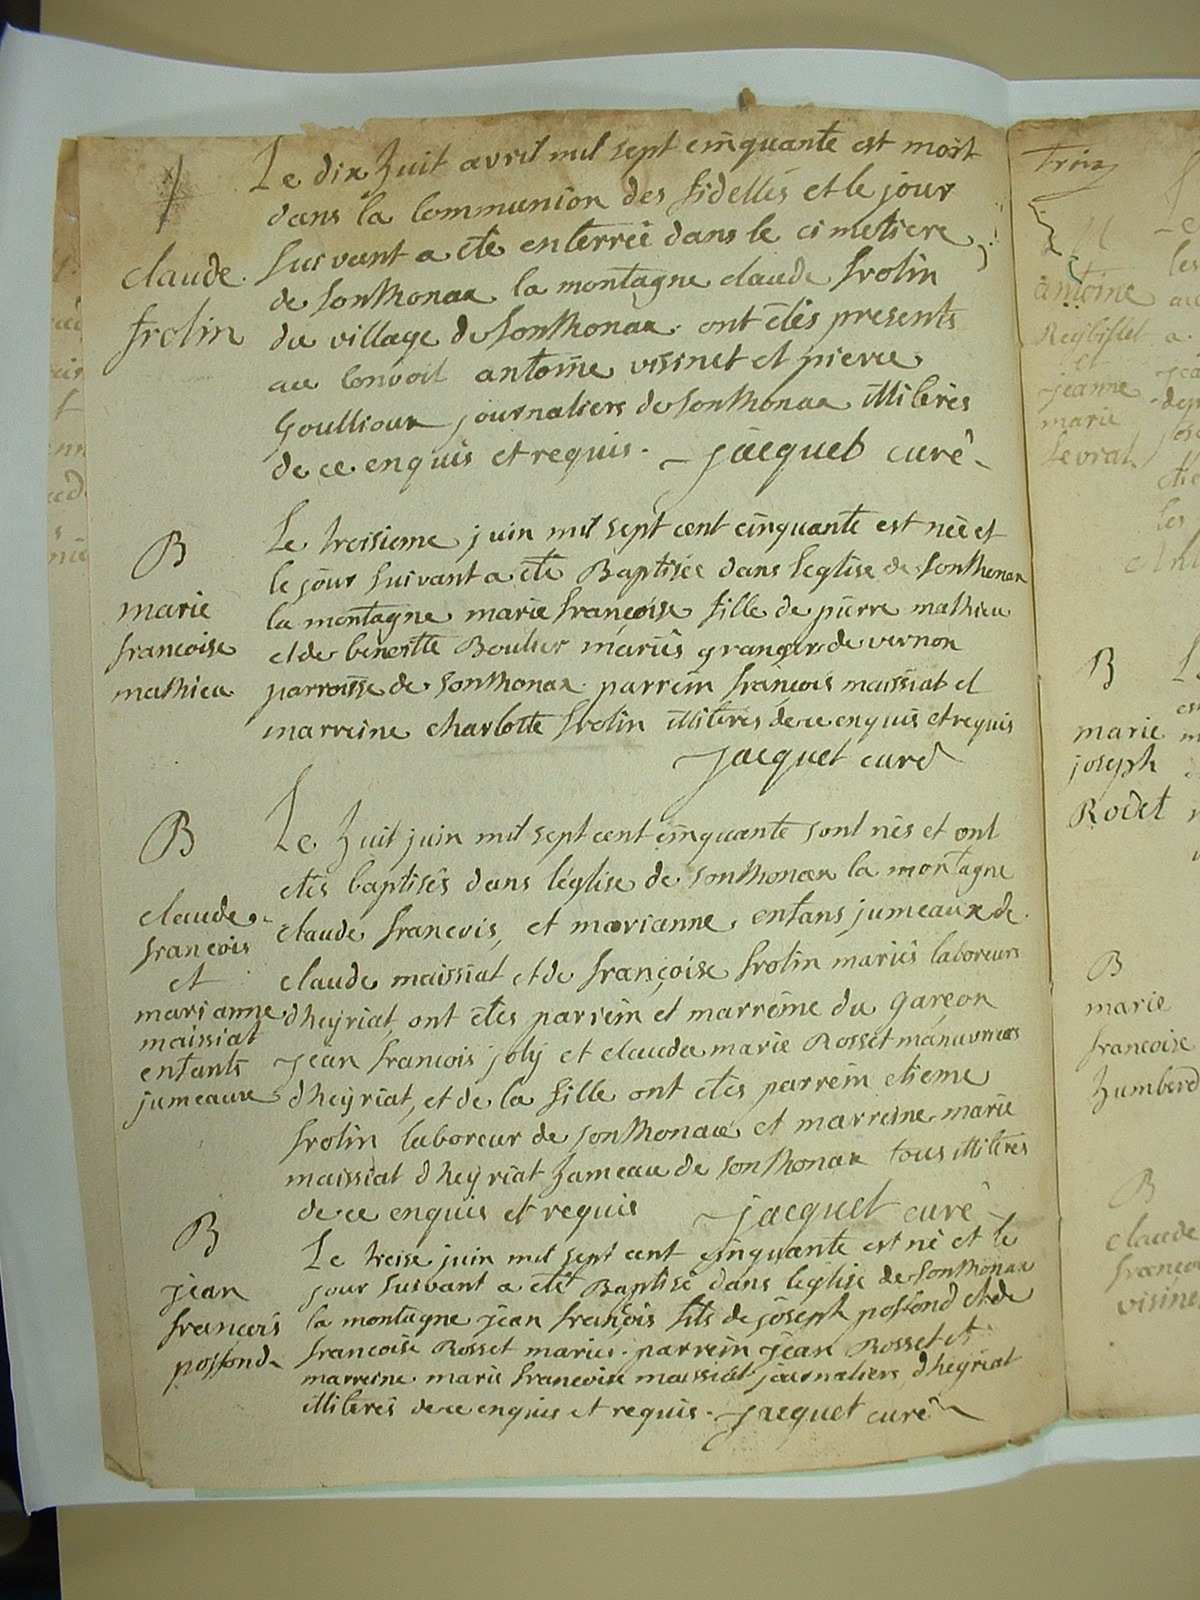 Le dix huit avril mil sept cinquante est mort
dans la communion des fidelles et le jour
suivant a ete enterrée dans le cimetiere
de Sonthonax la montagne claude frolin
du village de Sonthonax ont étés presents
au convoit antoine visinet et pierre
Goullioux journaliers de Sonthonax illiterés
de ce enquis et requis. jacquet curé
claude
frolin
Le troisieme juin mil sept cent cinquante est née et
le jour suivant a ete Baptisée dans leglise de Sonthonax
la montagne marie françoise fille de pierre mathieu
et de benoitte Boulier mariés granger de vernon
parroisse de Sonthonax parrein francois maissiat et
marreine charlotte frolin illiteres de ce enquis et requis
jacquet curé
B
marie
francoise
mathieu
Le huit juin mil sept cent cinquante sont nés et ont
etes baptisés dans léglise de Sonthonax la montagne
claude francois, et marianne enfans jumeaux de
claude maissiat et de françoise frolin mariés laboreurs
dheyriat, ont étes parrein et marreine du garçon
jean francois joly et clauda marie Rosset manuvriers
dheyriat, et de la fille ont etes parrein etieme
frolin laboreur de Sonthonax et marreine marie
maissiat dheyriat hameau de Sonthonax tous illiteres
de ce enquis et requis jacquet curé
B
claude
francois
et
marianne
maissiat
enfants
jumeaux
Le treise juin mil sept cent cinquante est né et le
jour suivant a eté Baptisé dans leglise de Sonthonax
la montagne jean françois fils de joseph poffond et de
francoise Rosset mariés. parrein jean Rosset et
marreine marie francoise maissiat journaliers dheyriat
illiterés de ce enquis et requis. jacquet curé
B
jean
francois
poffond
antoine
Reybillet
et
jeanne
marie
levrat
B
marie
joseph
Rodet
B
marie
francoise
humberd
B
claude
francois
visinet